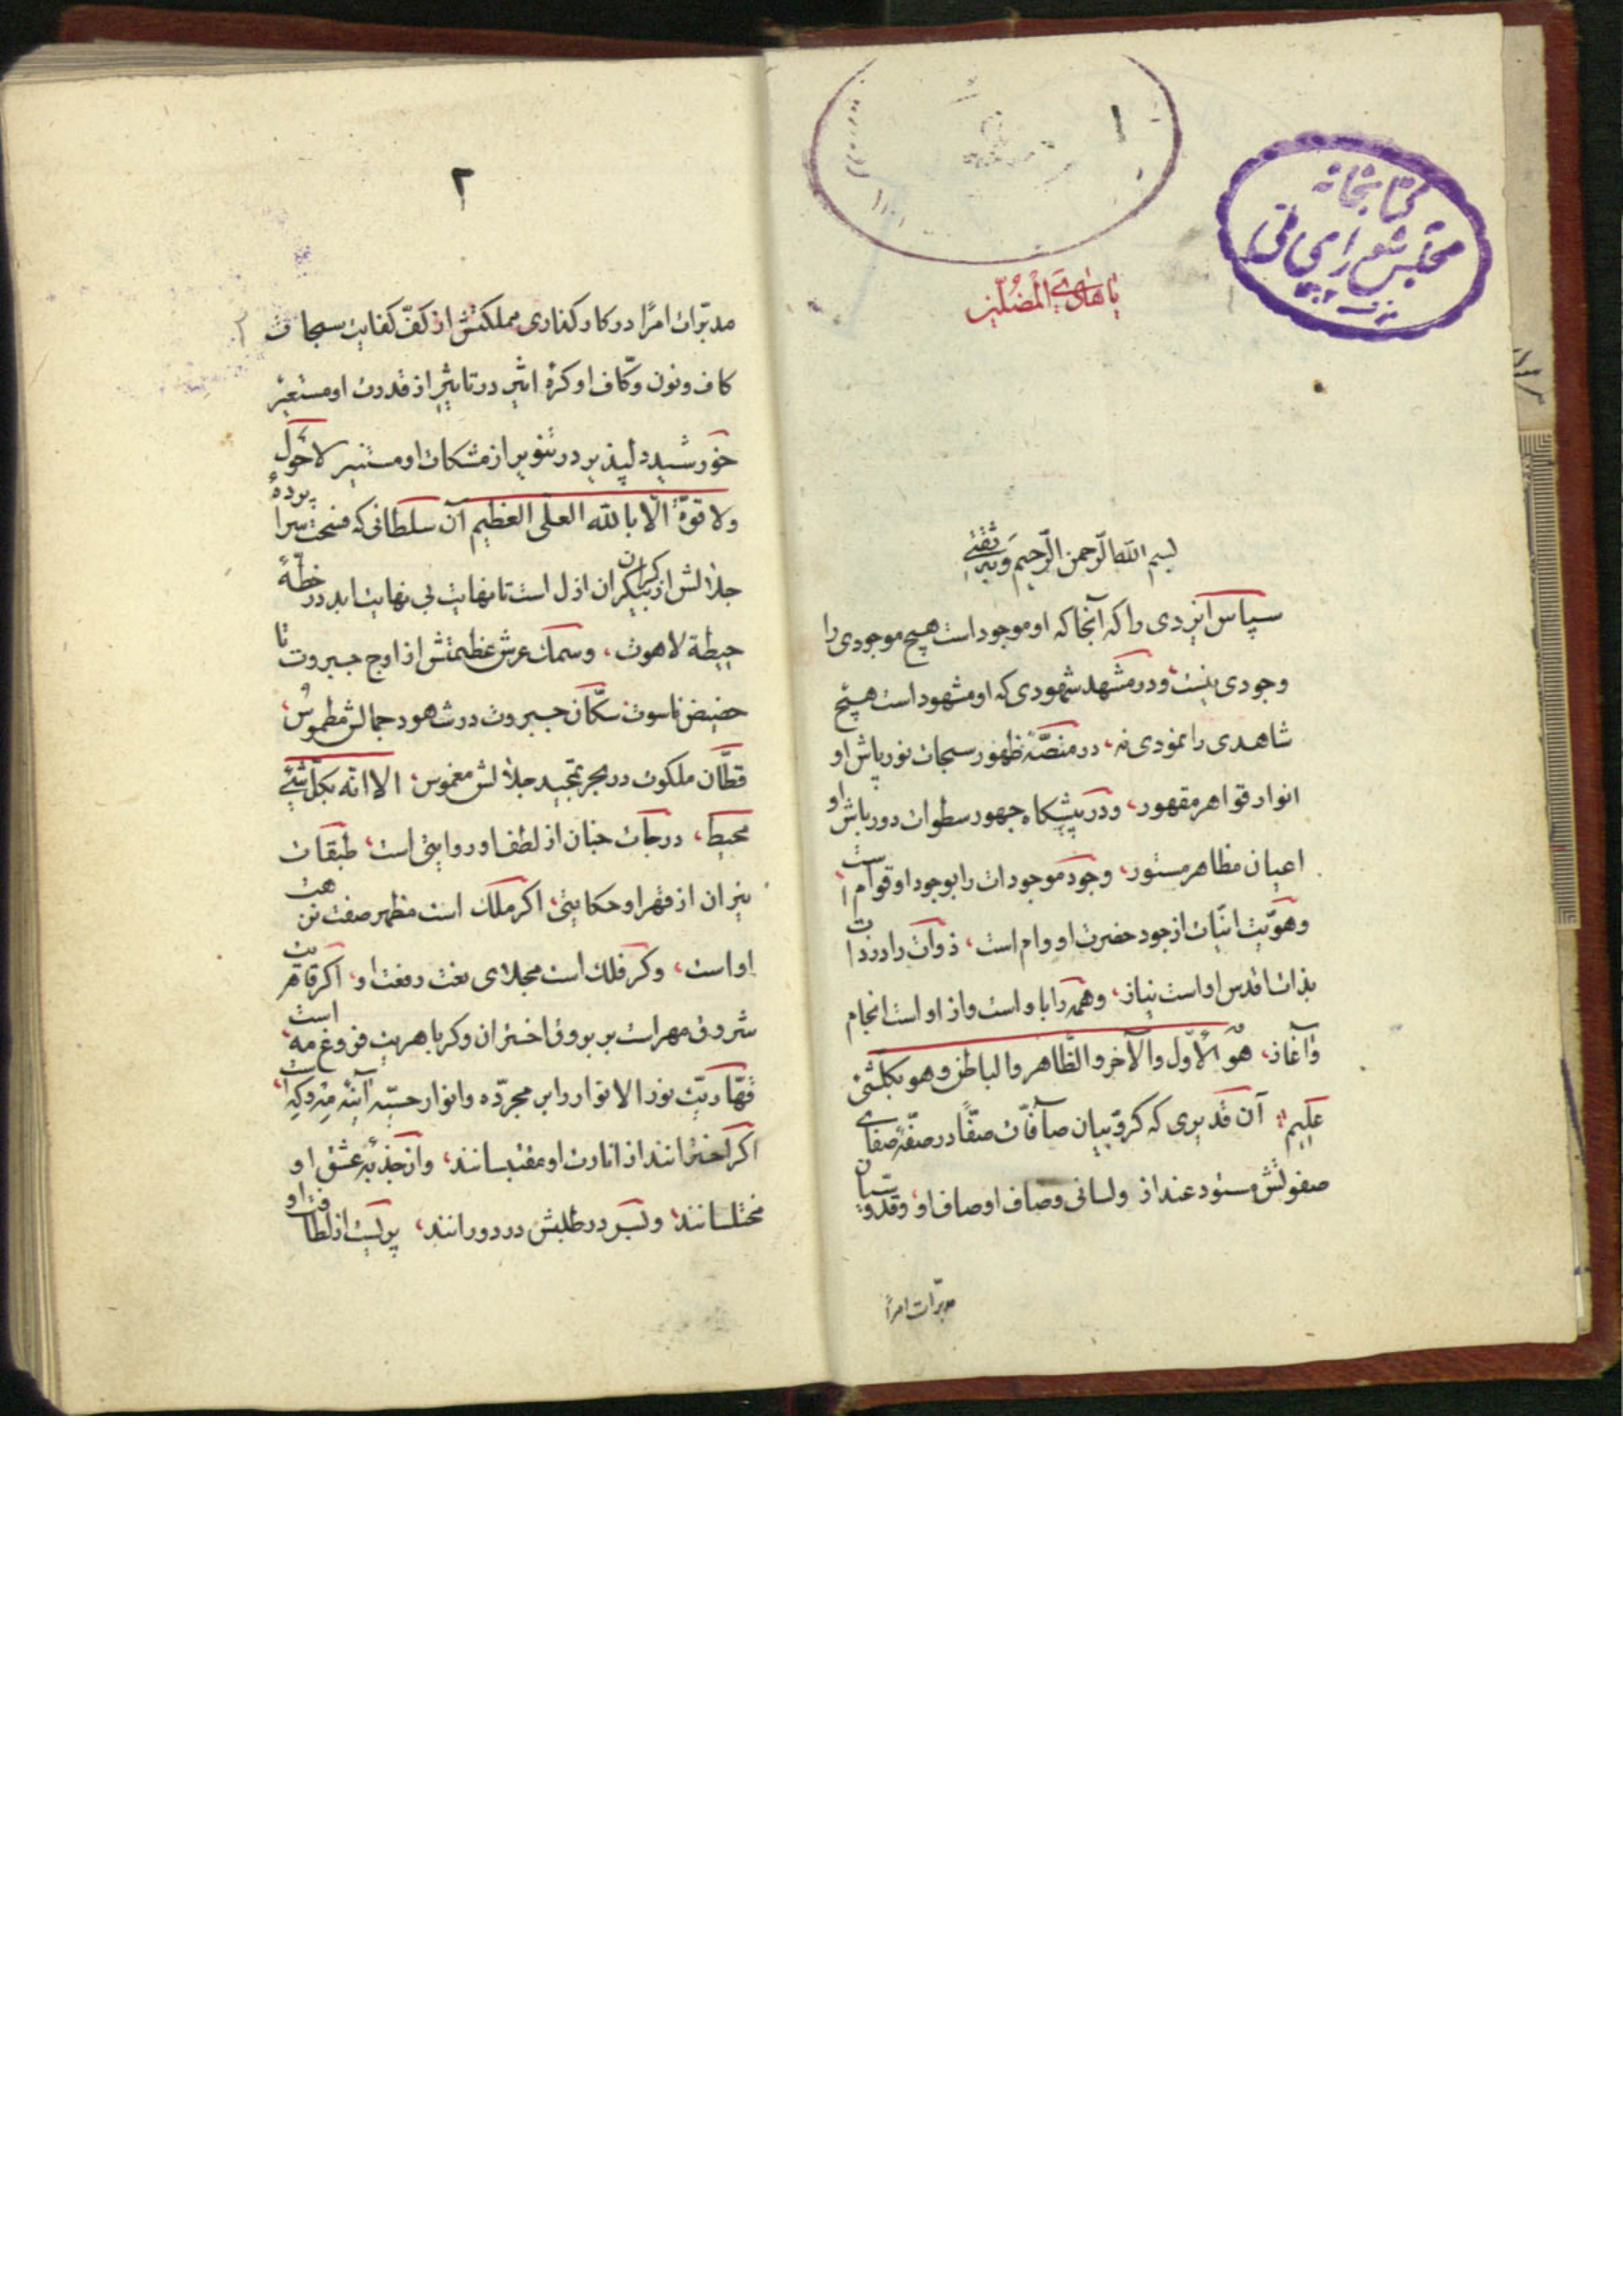 کتابخانه
مجلس شورای ملی
۱
یا هادی المضلین
بسم الله الرحمن الرحیم وبه ثقتی
سپاس ایزدی را که آنجا که او موجود است هیچ موجودی را
وجودی نیست، ودر مشهد شهودی که او مشهود است هیچ
شاهدی را نمودی نه، در منصّهٔ ظهور سبحات نورپاش او
انوار قواهر مقهور، ودر پیشکاه جهور سطوات دورباش او
اعیان مظاهر مستور، وجود موجودات را بوجود او قوام است
وهویّت انیّات از جود حضرت او وام است، ذوات را در ذات
بذات اقدس او است نیاز، وهمه را باو است واز او است انجام
وآغاز، هو الأوّل والآخر والظّاهر والباطن وهو بکلشئ
علیم، آن قدیری که کرّوبیان صآفّات صفّا در صفّهٔ صفای
صفوتش مستود عند از ولسانی وصاف اوصاف او، وقدوسیان
مدبّرات امرًا
۲
مدبّرات امرًا در کار کذاری مملکتش از کفّ کفایت سبحات
کاف ونون وکّاف او کرهٔ اثیر در تاثیر از قدرت او مستعیر
خورشید دلپذیر در تنویر از مشکات او مستنیر لاحول
ولا قوّة الّا بالله العلی العظیم آن سلطانی که فسحت سرا پردهٔ
جلالش از بیکران ازل است تا نهایت بی نهایت ابد در خطّهٔ
حیطهٔ لاهوت، وسمک عرش عظیمتش از اوج جبروت تا
حضیض ناسوت سکّان جبروت در شاهود جمالش مطموس،
قطّان ملکوت در بحر تمجید جلالش مغموس، الا انّه بکلّ شئ
محیط، درجات جنان از لطف او روایتی است، طبقات
نیران از قهر او حکایتی، اکر ملک است مظهر صفت نزهت
او است، وکر فلک است مجلای نعت رفعت او، اکر قاهریت
شروق مهر است بر بروق اختران وکر باهریت فروغ مه است،
قهّاریّت نور الانوار را بر مجرّده وانوار حسّیه آینهٔ مه وکه است،
اکر اخترانند از انارت او مقتبسانند، واز جذبهٔ عشق او
مختلسانند، وبسر در طلبش در دورانند، پرتیست از لطافت او